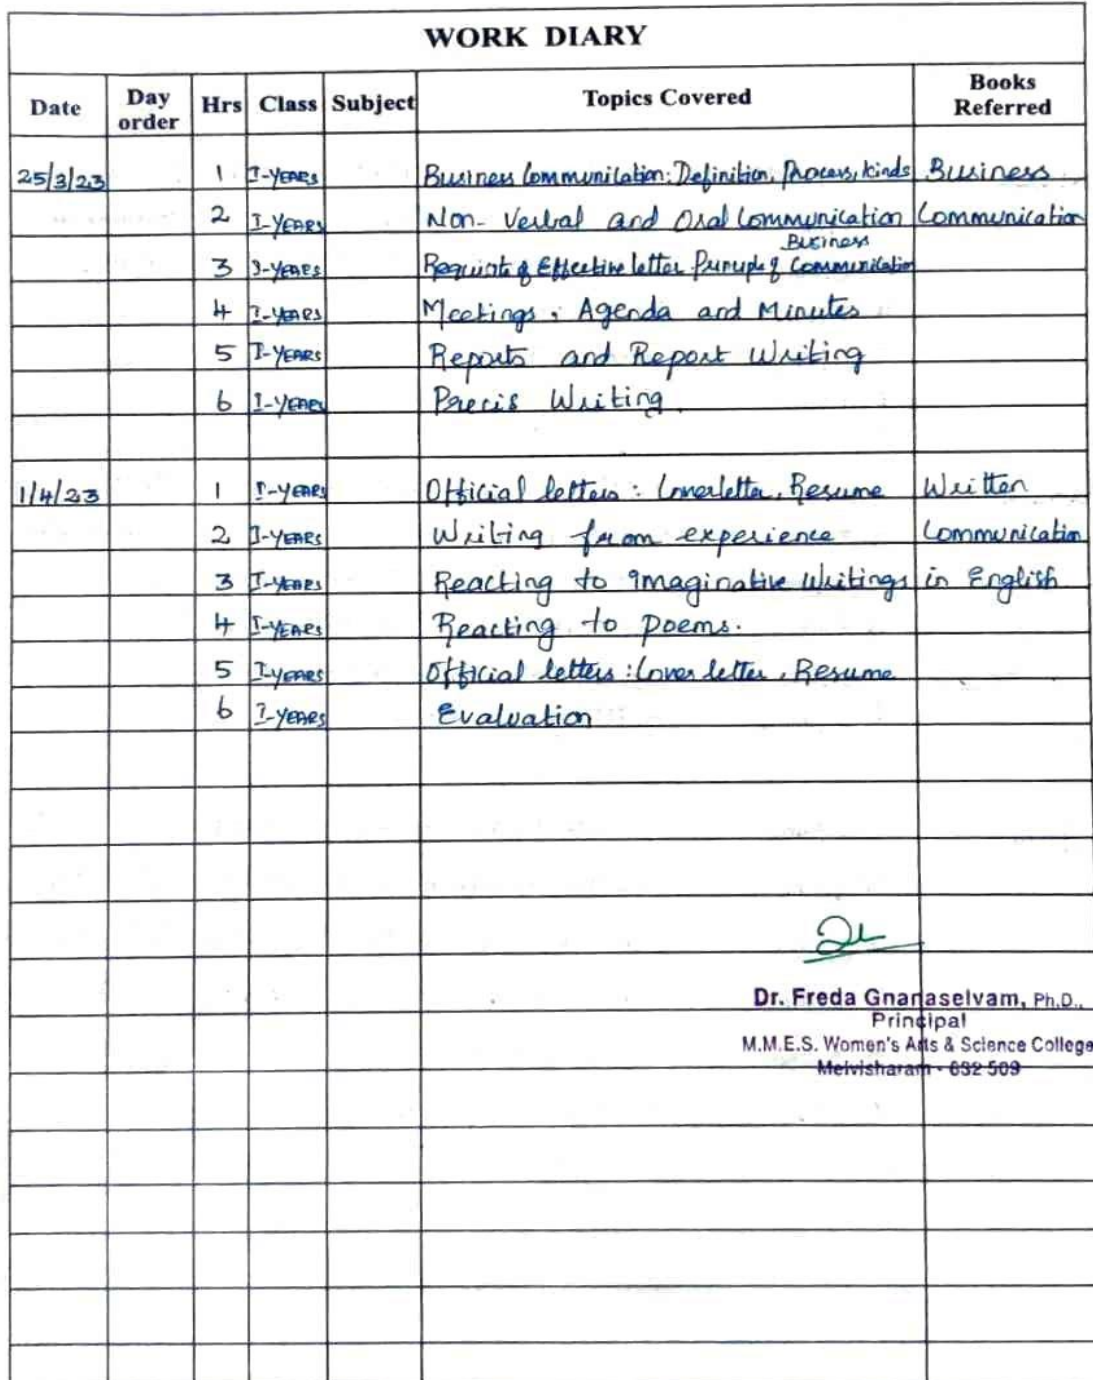 WORK DIARY
Date Day order Hrs Class Subject Topics Covered Books Referred
25/3/23 1 I-YEARS Business Communication: Definition, Process, kinds Business
2 I-YEARS Non-Verbal and Oral Communication Communication
Business
3 I-YEARS Requisite of Effective letter Principle of Communication
4 I-YEARS Meetings, Agenda and Minutes
5 I-YEARS Reports and Report Writing
6 I-YEARS Precis Writing.
1/4/23 1 I-YEARS Official letters: Coverletter, Resume Written
2 I-YEARS Writing from experience Communication
3 I-YEARS Reacting to imaginative writings in English
4 I-YEARS Reacting to poems.
5 I-YEARS Official letters: Cover letter, Resume
6 I-YEARS Evaluation
Dr. Freda Gnanaselvam, Ph.D.,
Principal
M.M.E.S. Women's Arts & Science College
Melvisharam - 632 509